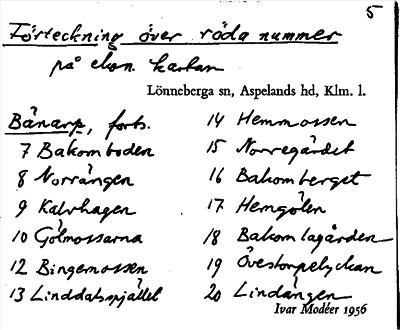 5
Förteckning över röda nummer
på ekon. kartan
Lönneberga sn, Aspelands hd, Klm. l.
Bänarp, forts.
7 Bakomboden
8 Norrängen
9 Kalvhagen
10 Gölmossarna
12 Bingemossen
13 Linddalsspjället
14 Hemmossen
15 Norregärdet
16 Bakomberget
17 Hemgölen
18 Bakom lagården
19 Övestorpelyckan
20 Lindängen
Ivar Modéer 1956